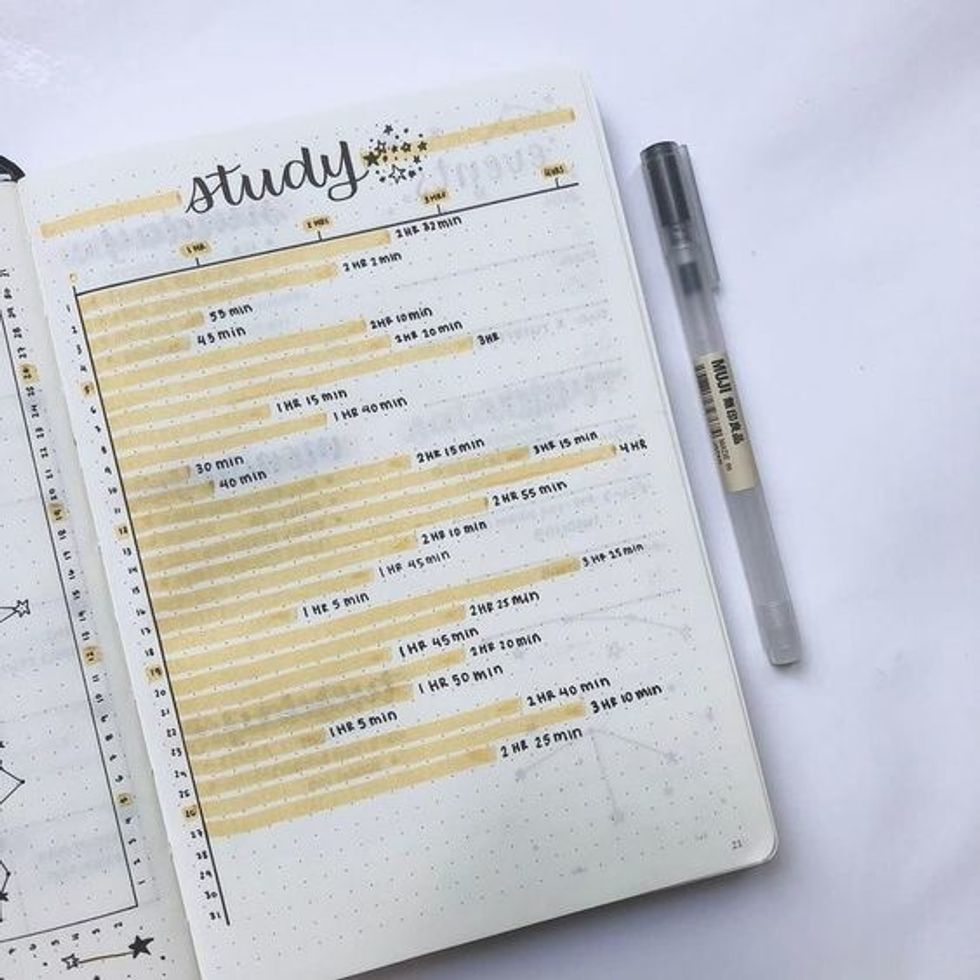 study
1 HR
2 HRS
3 HRS
4 HRS
2 HR 32 min
2 HR 2 min
55 min
45 min
2 HR 10 min
2 HR 20 min
3 HR
1 HR 15 min
1 HR 40 min
30 min
40 min
2 HR 15 min
3 HR 15 min
4 HR
2 HR 55 min
2 HR 10 min
1 HR 45 min
1 HR 5 min
3 HR 25 min
2 HR 25 min
1 HR 45 min
2 HR 20 min
1 HR 50 min
1 HR 5 min
2 HR 40 min
3 HR 10 min
2 HR 25 min
1
2
3
4
5
6
7
8
9
10
11
12
13
14
15
16
17
18
19
20
21
22
23
24
25
26
27
28
29
30
31
21
MUJI 無印良品
MADE IN